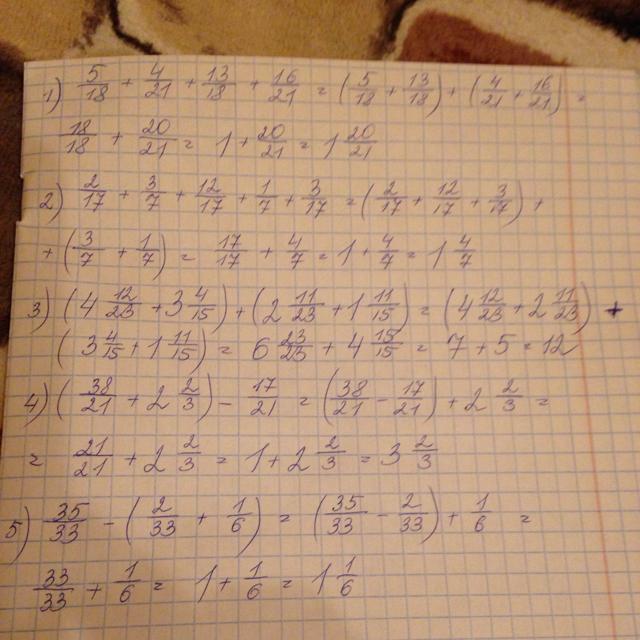 1) 5/18 + 4/21 + 13/18 + 16/21 = (5/18 + 13/18) + (4/21 + 16/21) =
18/18 + 20/21 = 1 + 20/21 = 1 20/21
2) 2/17 + 3/7 + 12/17 + 1/7 + 3/17 = (2/17 + 12/17 + 3/17) +
+ (3/7 + 1/7) = 17/17 + 4/7 = 1 + 4/7 = 1 4/7
3) (4 12/23 + 3 4/15) + (2 11/23 + 1 11/15) = (4 12/23 + 2 11/23) +
(3 4/15 + 1 11/15) = 6 23/23 + 4 15/15 = 7 + 5 = 12
4) (38/21 + 2 2/3) - 17/21 = (38/21 - 17/21) + 2 2/3 =
= 21/21 + 2 2/3 = 1 + 2 2/3 = 3 2/3
5) 35/33 - (2/33 + 1/6) = (35/33 - 2/33) + 1/6 =
33/33 + 1/6 = 1 + 1/6 = 1 1/6